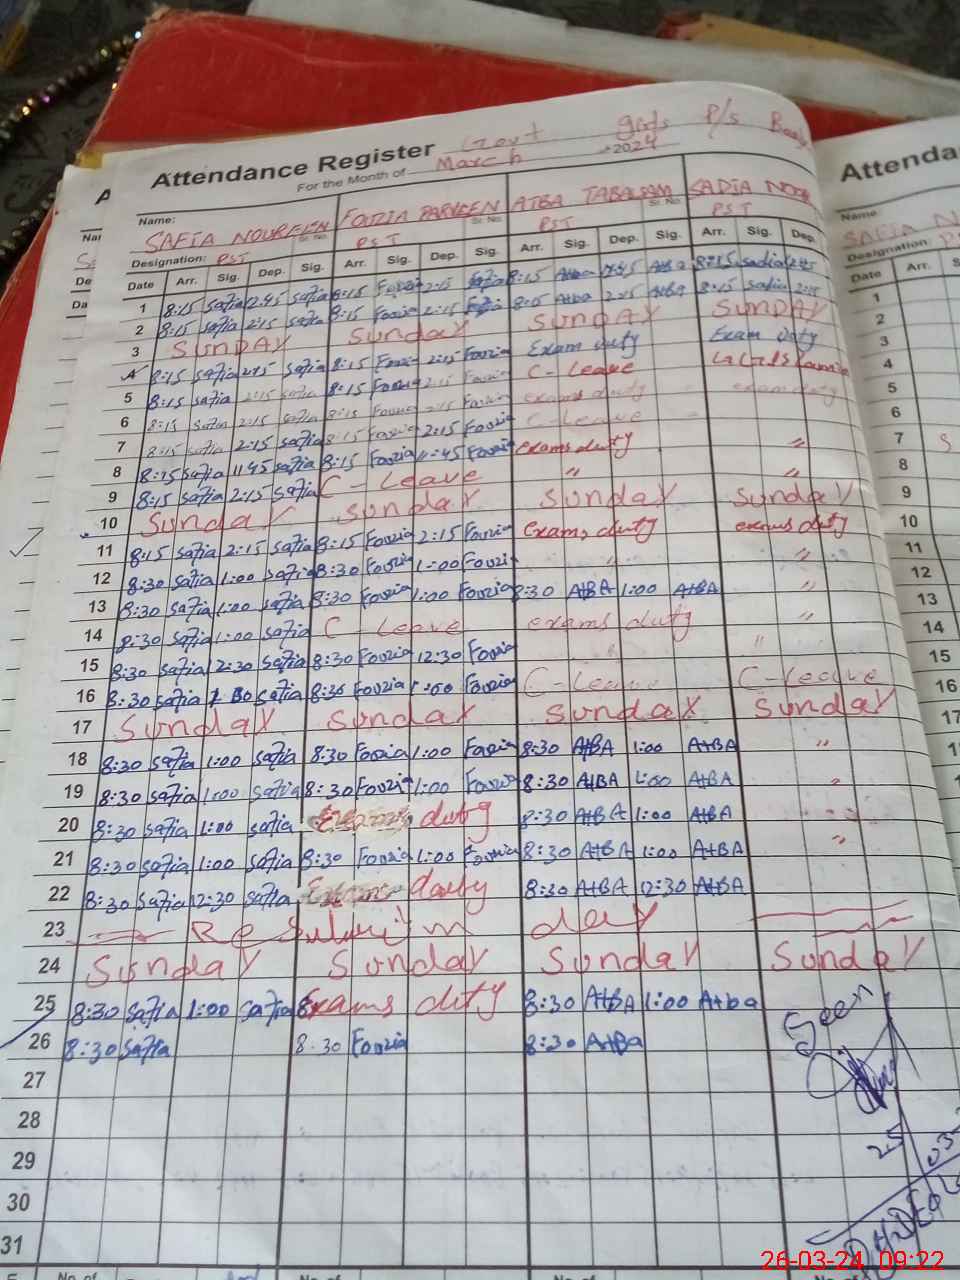 Attendance Register Govt girls P/s
For the Month of March 2024
Name: SAFIA NOUREEN FOUZIA PARVEEN ATBA TABASAM SADIA NOOR
Sr. No. Sr. No.
Designation: PST PST PST PST
Date Arr. Sig. Dep. Sig. Arr. Sig. Dep. Sig. Arr. Sig. Dep. Sig. Arr. Sig. Dep.
1 8:15 Safia 2:45 Safia 8:15 Fouzia 2:15 8:15 Atba AtBa 8:15 Sadia
2 8:15 Safia 2:15 Safia 8:15 Fouzia 2:15 8:15 Atba 2:15 AtBa 8:15 Sadia 2:15
3 SUNDAY SUNDAY SUNDAY SUNDAY
4 8:15 Safia 2:15 Safia 8:15 Fouzia 2:15 Fouzia Exam duty Exam duty
5 8:15 Safia 2:15 Safia 8:15 Fouzia 2:15 Fouzia C-Leave
6 8:15 Safia 2:15 Safia 8:15 Fouzia 2:15 Fouzia exams duty exam duty
7 8:15 Safia 2:15 Safia 8:15 Fouzia 2:15 Fouzia C-Leave
8 8:15 Safia 11:45 Safia 8:15 Fouzia 11:45 Fouzia exams duty "
9 8:15 Safia 2:15 Safia C-Leave " "
10 Sunday Sunday Sunday Sunday
11 8:15 Safia 2:15 Safia 8:15 Fouzia 2:15 Fouzia exams duty exams duty
12 8:30 Safia 1:00 Safia 8:30 Fouzia 1:00 Fouzia " "
13 8:30 Safia 1:00 Safia 8:30 Fouzia 1:00 Fouzia 8:30 AtBA 1:00 AtBA "
14 8:30 Safia 1:00 Safia C-Leave exams duty "
15 8:30 Safia 12:30 Safia 8:30 Fouzia 12:30 Fouzia "
16 8:30 Safia Safia 8:30 Fouzia 1:00 Fouzia C-Leave C-Leave
17 Sunday Sunday Sunday Sunday
18 8:30 Safia 1:00 Safia 8:30 Fouzia 1:00 Fouzia 8:30 AtBA 1:00 AtBA "
19 8:30 Safia 1:00 Safia 8:30 Fouzia 1:00 Fouzia 8:30 AtBA 1:00 AtBA "
20 8:30 Safia 1:00 Safia duty 8:30 AtBA 1:00 AtBA
21 8:30 Safia 1:00 Safia 8:30 Fouzia 1:00 Fouzia 8:30 AtBA 1:00 AtBA "
22 8:30 Safia 12:30 Safia duty 8:30 AtBA 12:30 AtBA
23 day
24 Sunday Sunday Sunday Sunday
25 8:30 Safia 1:00 Safia Exams duty 8:30 AtBA 1:00 Atba
26 8:30 Safia 8:30 Fouzia 8:30 AtBa
27
28
29
30
31
Seen
25
03
No. of No. of
Attenda
Name:
Designation:
Date Arr.
1
2
3
4
5
6
7 S
8
9
10
11
12
13
14
15
16
17
26-03-24, 09:22